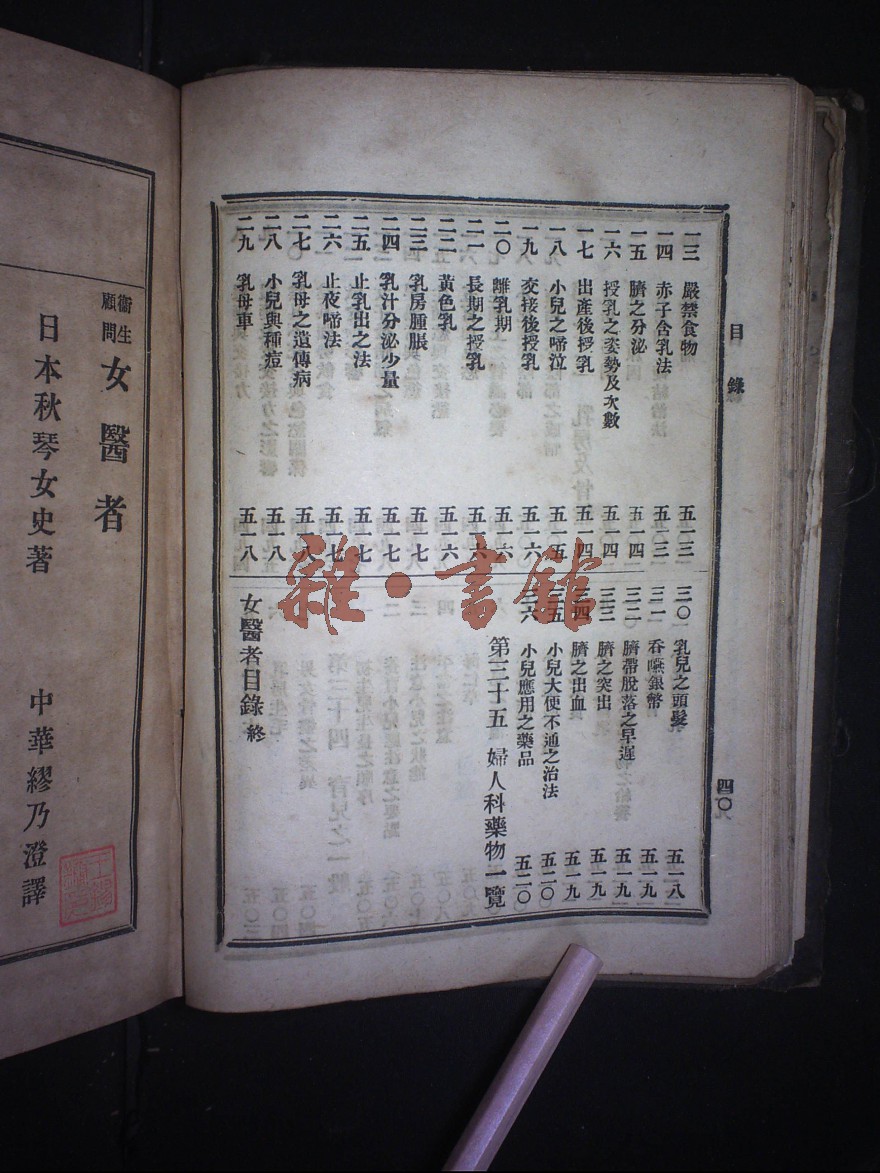 目錄
四〇
一三 嚴禁食物 五一三
一四 赤子含乳法 五一三
一五 臍之分泌 五一四
一六 授乳之姿勢及次數 五一四
一七 出產後授乳 五一四
一八 小兒之啼泣 五一五
一九 交接後授乳 五一六
二〇 離乳期 五一六
二一 長期之授乳 五一六
二二 黃色乳 五一六
二三 乳房腫脹 五一七
二四 乳汁分泌少量 五一七
二五 止乳出之法 五一七
二六 止夜啼法 五一七
二七 乳母之遺傳病 五一八
二八 小兒與種痘 五一八
二九 乳母車 五一八
三〇 乳兒之頭髮 五一八
三一 吞嚥銀幣 五一九
三二 臍帶脫落之早遲 五一九
三三 臍之突出 五一九
三四 臍之出血 五一九
三五 小兒大便不通之治法 五二〇
三六 小兒應用之藥品 五二〇
第三十五 婦人科藥物一覽
女醫者目錄 終
衞生顧問 女醫者
日本秋琴女史著
中華繆乃澄譯
雜·書館